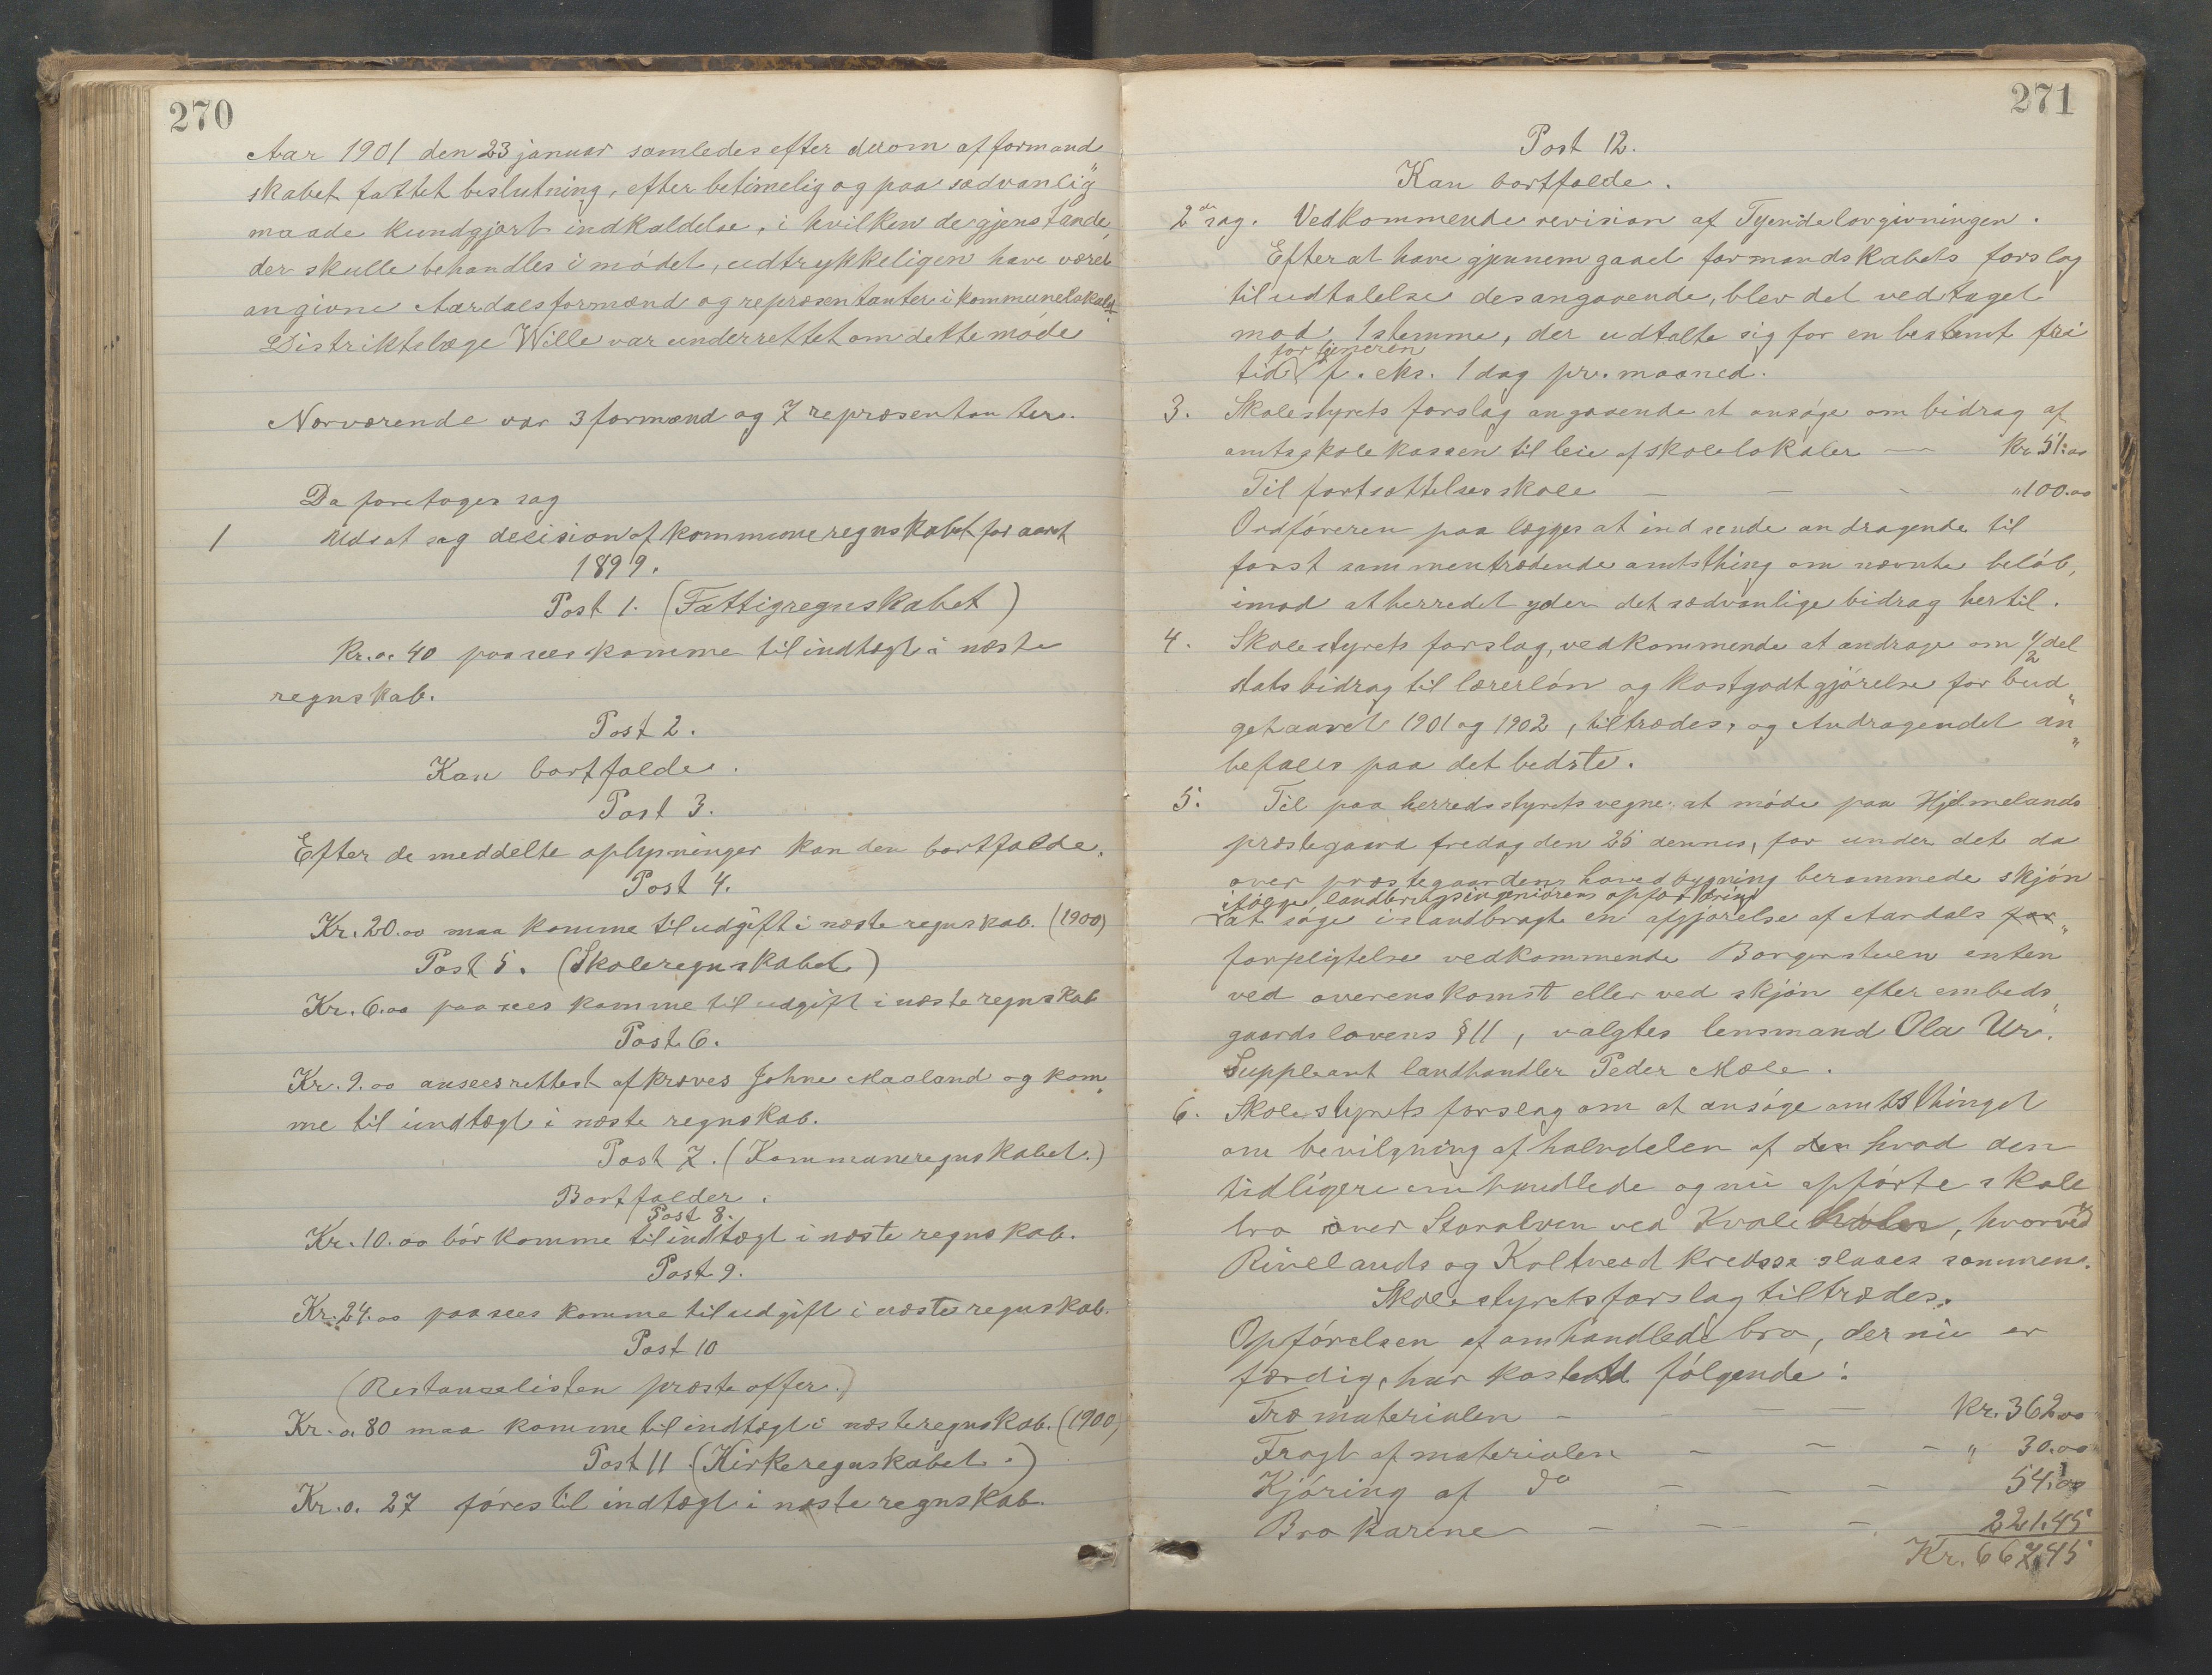 270
Aar 1901 den 23 januar samledes efter derom af formand
skabet fattet beslutning, efter betimelig og paa sædvanlig
maade kundgjort indkaldelse, i hvilken de gjenstande,
der skulle behandles i mødet, udtrykkeligen have været
angivne Aardals formænd og repræsentanter i kommunelokalet.
Distriktslæge Wille var underrettet om dette møde
Nærværende var 3 formænd og 7 repræsentanter.
Da foretoges sag
1 Udsat sag decision af kommuneregnskabet for aaret
1899.
Post 1. (Fattigregnskabet)
Kr. o. 40 paasees komme til indtægt i næste
regnskab.
Post 2.
Kan bortfalde.
Post 3.
Efter de meddelte oplysninger kan den bortfalde.
Post 4.
Kr. 20.00 maa komme til udgift i næste regnskab. (1900)
Post 5. (Skoleregnskabet)
Kr. 6.00 paasees komme til udgift i næste regnskab
Post 6.
Kr. 9.00 ansees rettest afkræves Johne Maaland og kom
me til indtægt i næste regnskab.
Post 7. (Kommuneregnskabet.)
Bortfalder.
Post 8.
Kr. 10.00 bør komme til indtægt i næste regnskab.
Post 9.
Kr. 24.00 paasees komme til udgift i næste regnskab.
Post 10
(Restancelisten præsteoffer.)
Kr. o. 80 maa komme til indtægt i næste regnskab. (1900)
Post 11 (Kirkeregnskabet.)
Kr. o. 27 føres til indtægt i næste regnskab.
271
Post 12.
Kan bortfalde.
2de sag. Vedkommende revision af Tyendelovgivningen.
Efter at have gjennemgaaet formandskabets forslag
til udtalelse desangaaende, blev det vedtaget
mod 1 stemme, der udtalte sig for en bestemt fri
for tjeneren
tid f. eks. 1 dag pr. maaned.
3. Skolestyrets forslag angaaende at ansøge om bidrag af
amtsskolekassen til leie af skolelokaler — Kr. 51.00
Til fortsættelsesskole — — - " 100.00
Ordføreren paalægges at indsende andragende til
først sammentrædende amtsthing om nævnte beløb,
imod at herredet yder det sædvanlige bidrag hertil.
4. Skolestyrets forslag, vedkommende at andrage om 1/2 del
statsbidrag til lærerløn og kostgodtgjørelse for bud
getaaret 1901 og 1902, tiltrædes, og Andragendet an"
befales paa det bedste.
5. Til paa herredsstyrets vegne at møde paa Hjelmelands
præstegaard fredag den 25 dennes, for under det da
over præstegaardens hovedbygning berammede skjøn
ifølge landbrugsingeniørens opfordring
at søge istandbragt en afgjørelse af Aardals for"
forpligtelse vedkommende Borgerstuen enten
ved overenskomst eller ved skjøn efter embeds"
gaardslovens § 11, valgtes lensmand Ola Ur.
Suppleant landhandler Peder Mæle.
6. Skolestyrets forslag om at ansøge amtsthinget
om bevilgning af halvdelen af den hvad den
tidligere omhandlede og nu opførte skole
bro over Storelven ved Kvale, hvorved
Rivelands og Koltveed kredse slaaes sammen.
Skolestyrets forslag tiltrædes.
Opførelsen af omhandlede bro, der nu er
færdig, har kostet følgende:
Træmaterialen - — — Kr. 362.00
Fragt af materialen — — - " 30.00
Kjøring af do — — — 54.00
Brokarene — — — 221.45
Kr. 667.45